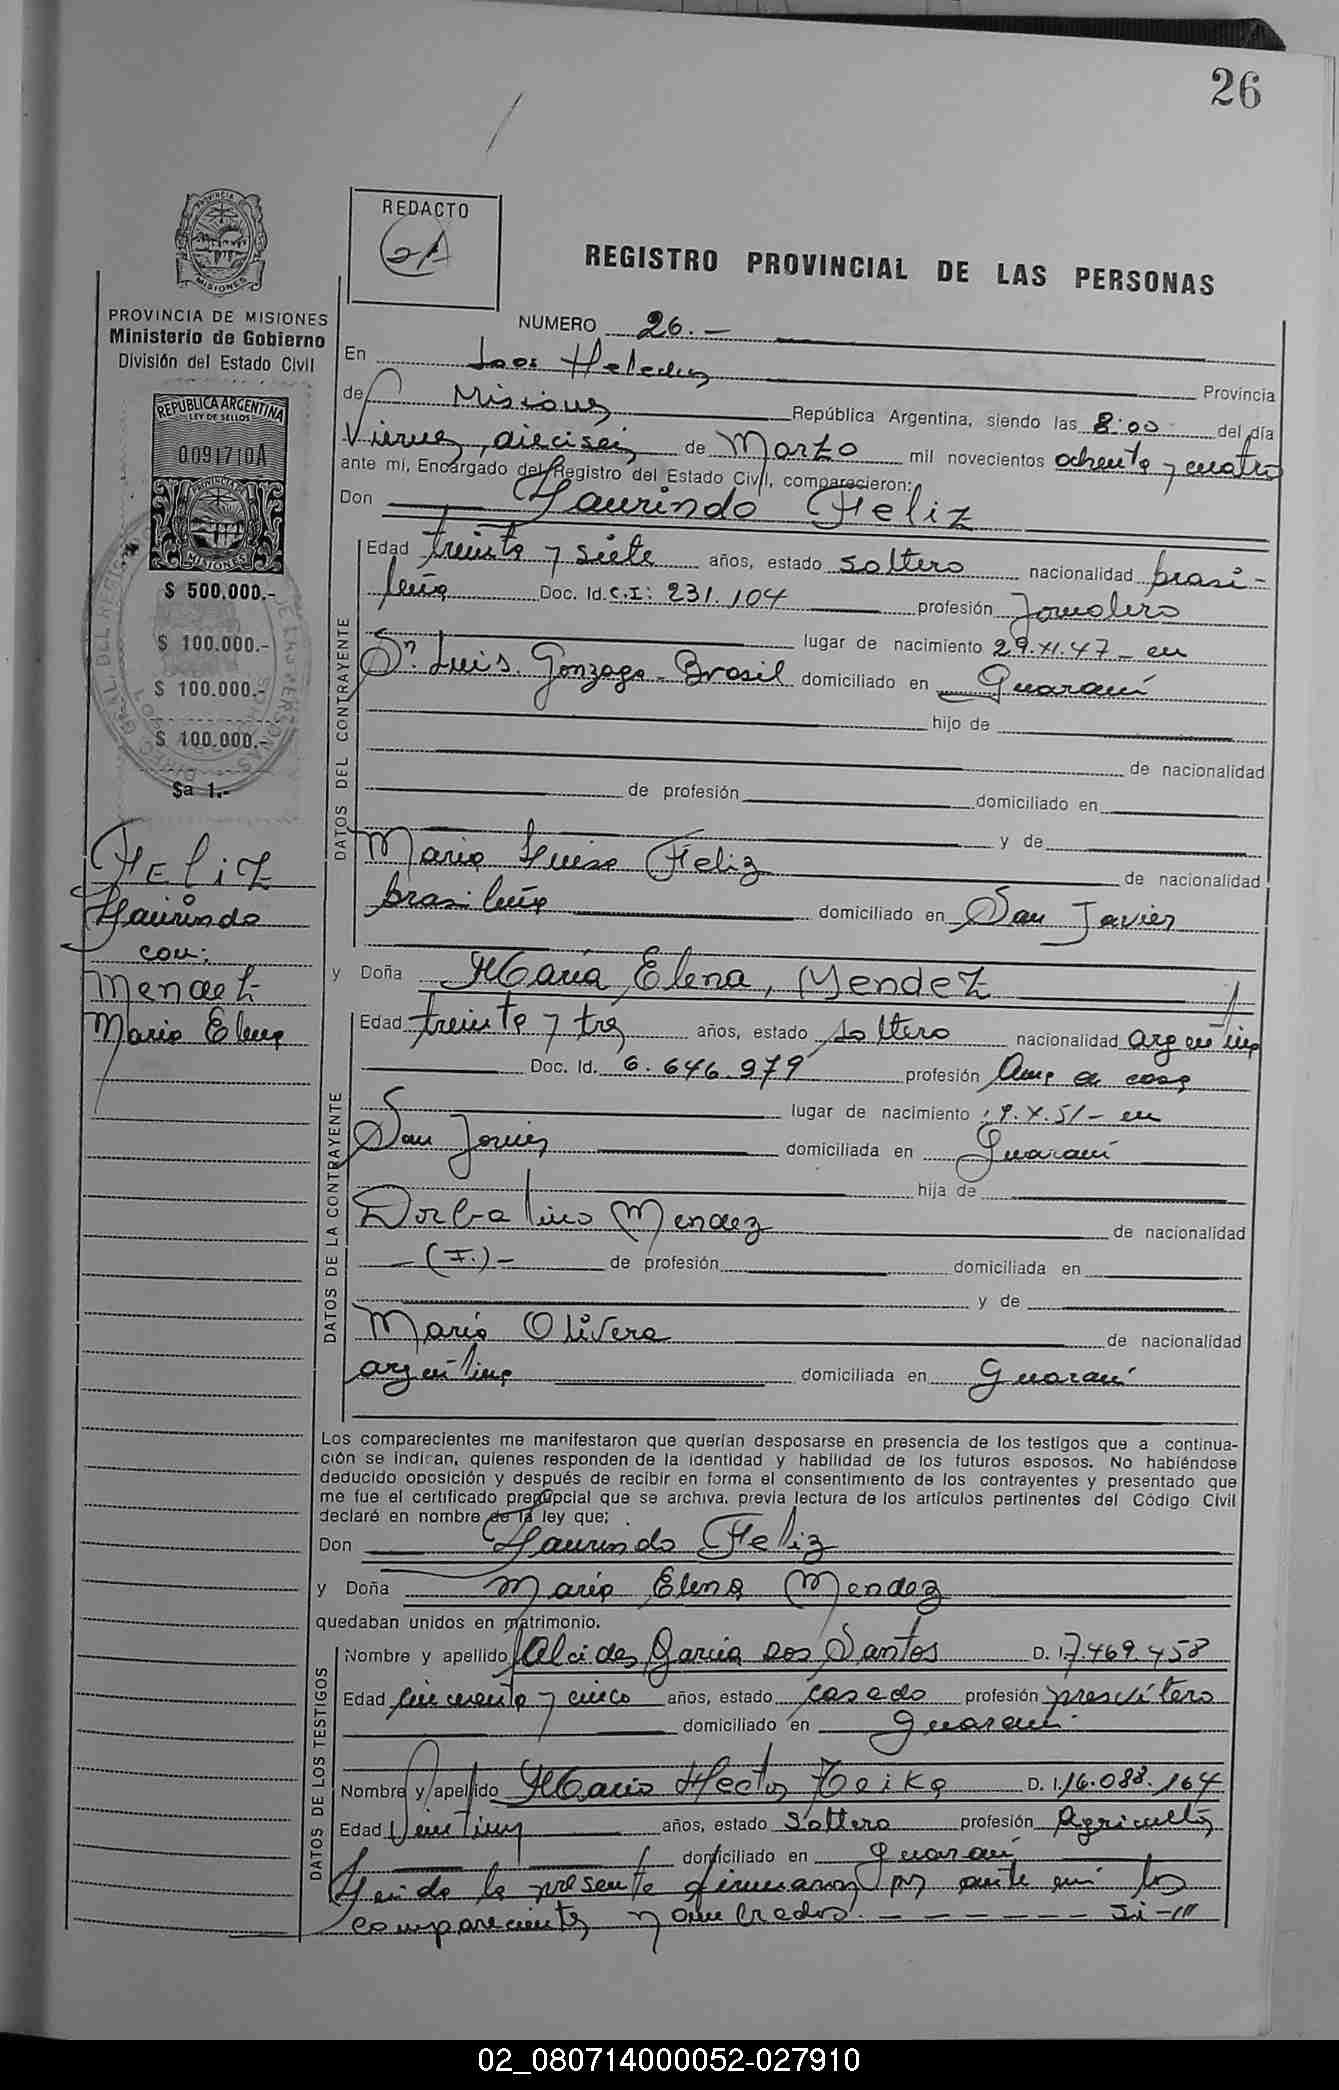 26
REDACTO
PROVINCIA
MISIONES
REGISTRO PROVINCIAL DE LAS PERSONAS
PROVINCIA DE MISIONES
Ministerio de Gobierno
División del Estado Civil
NUMERO 26.-
En Helechos
Provincia
de Misiones República Argentina, siendo las 8:00 del día
Viernes, dieciseis de Marzo mil novecientos ochenta y cuatro
ante mi, Encargado del Registro del Estado Civil, comparecieron:
Don Laurindo Feliz
REPUBLICA ARGENTINA
LEY DE SELLOS
0091710A
MISIONES
$ 500,000.-
$ 100.000.-
$ 100.000.-
$ 100.000.-
$a 1.-
FELIZ
Laurindo
con:
Mendez
Maria Elena
DATOS DEL CONTRAYENTE
Edad treinta y siete años, estado soltero nacionalidad brasi-
leña Doc. Id. C.I: 231.104 profesión Jornalero
lugar de nacimiento 29.XI.47 - en
Sn. Luis Gonzaga - Brasil domiciliado en Guaraní
hijo de
de nacionalidad
de profesión domiciliado en
y de
Maria Luisa Feliz de nacionalidad
brasileña domiciliado en San Javier
y Doña Maria Elena, Mendez
DATOS DE LA CONTRAYENTE
Edad treinta y tres años, estado soltera nacionalidad argentina
Doc. Id. 6.646.979 profesión Ama de casa
lugar de nacimiento 9.X.51 - en
San Javier domiciliada en Guaraní
hija de
Dorbalino Mendez de nacionalidad
- (F.) - de profesión domiciliada en
y de
Maria Olivera de nacionalidad
argentina domiciliada en Guaraní
Los comparecientes me manifestaron que querían desposarse en presencia de los testigos que a continua-
ción se indican, quienes responden de la identidad y habilidad de los futuros esposos. No habiéndose
deducido oposición y después de recibir en forma el consentimiento de los contrayentes y presentado que
me fue el certificado prenupcial que se archiva, previa lectura de los artículos pertinentes del Código Civil
declaré en nombre de la ley que;
Don Laurindo Feliz
y Doña Maria Elena Mendez
quedaban unidos en matrimonio.
DATOS DE LOS TESTIGOS
Nombre y apellido Alcides Garcia Dos Santos D. I. 7.469.458
Edad cincuenta y cinco años, estado casado profesión presvítero
domiciliado en Guaraní
Nombre y apellido Mario Hector D. I. 16.088.164
Edad Veintiun años, estado Soltero profesión Agricultor
domiciliado en Guaraní
Leida la presente firmaron por ante mi los
comparecientes nombrados. - - - - - -
02_080714000052-027910